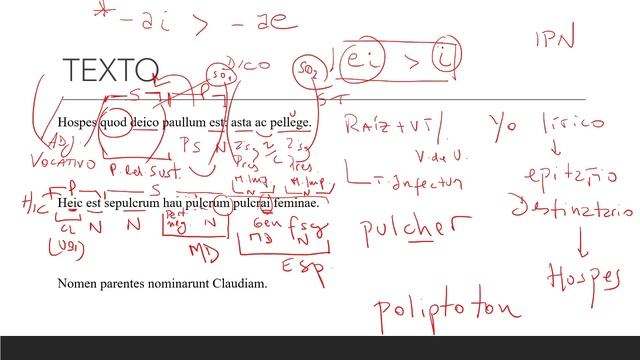 *-ai > -ae
IPN
TEXTO
DICO
SO2
ei > i
S
P
Hospes quod deico paullum est: asta ac pellege.
RAÍZ + VT
Yo lírico
ADJ.
VOCATIVO
P. rel. sust.
PS N
2sg
Pres
M. Imp.
N
V. de V.
T. Infectum
epitafio
Destinatario
HIC
P
S
Heic est sepulcrum hau pulcrum pulcrai feminae.
pulcher
CL
(UBI)
N
N
Part
neg.
N
MD
Gen
MD
fsg
N
ESP.
Hospes
Nomen parentes nominarunt Claudiam.
poliptoton